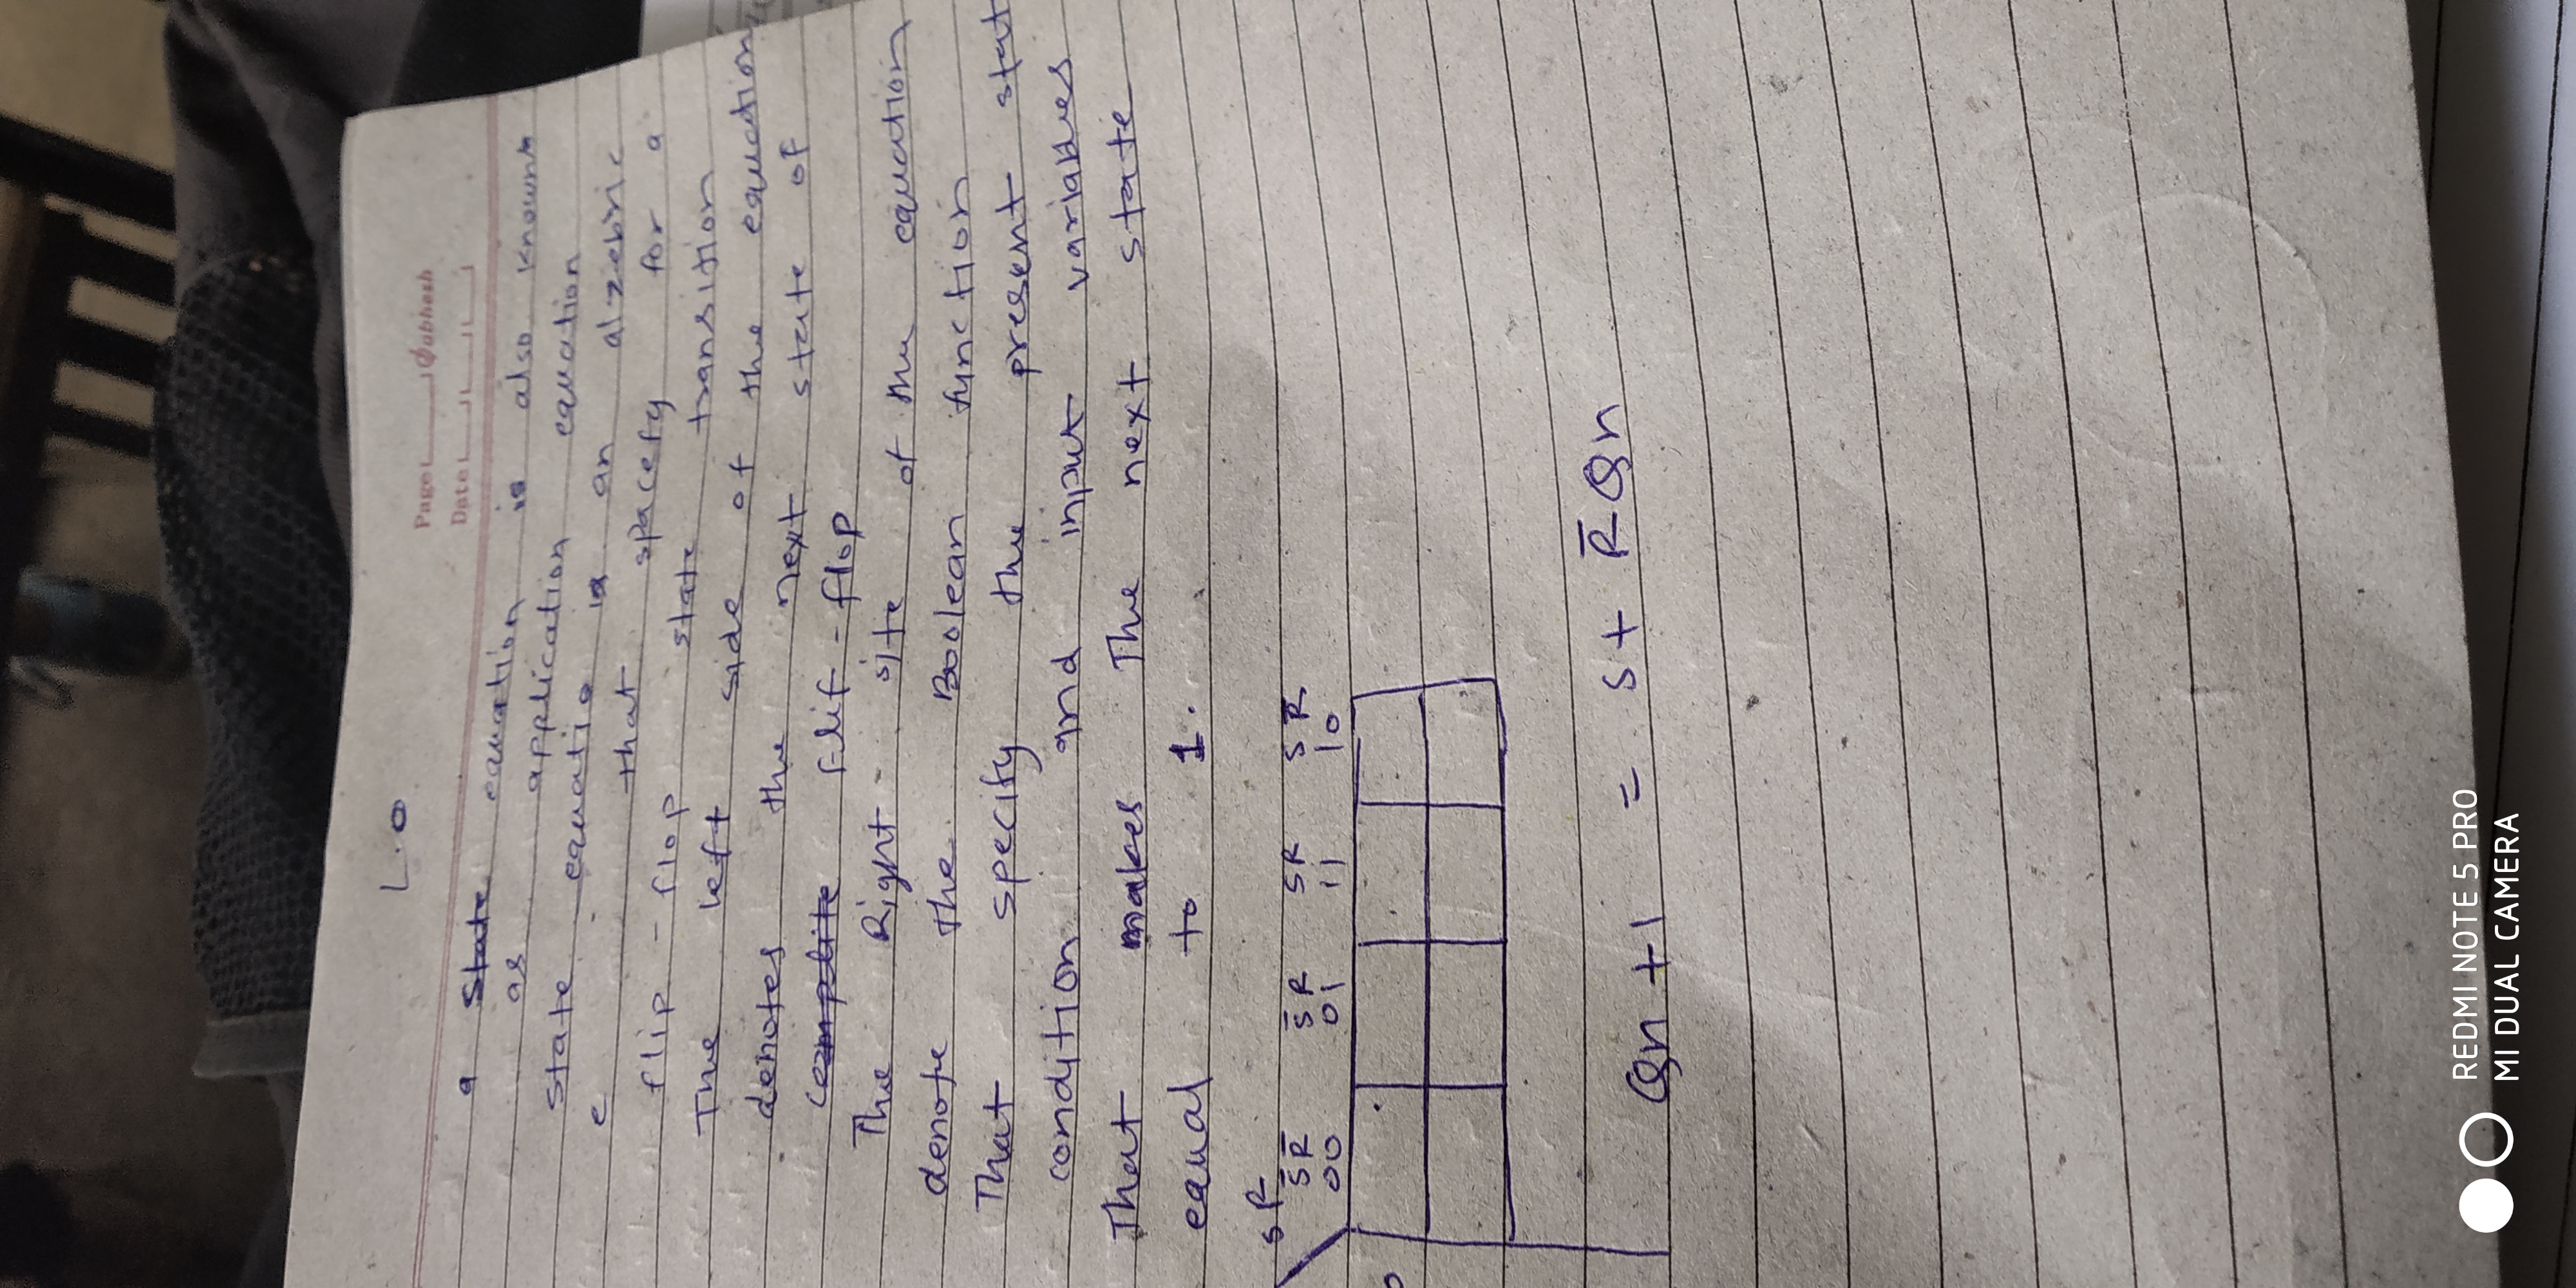 L.O
Page Subhash
Date
a State equation is also known
as application equation
state equatio is an alzebric
e that spacefy for a
flip - flop state transition
The left side of the equation
denotes the next state of
complite flif - flop
The Right site of the equation
denote the Boolean function
That specify the present stat
condition and input variables
That makes The next state
equal to 1.
SR
S̅R̅ S̅R SR SR̅
00 01 11 10
Qn +1 = S + R̅Qn
REDMI NOTE 5 PRO
MI DUAL CAMERA